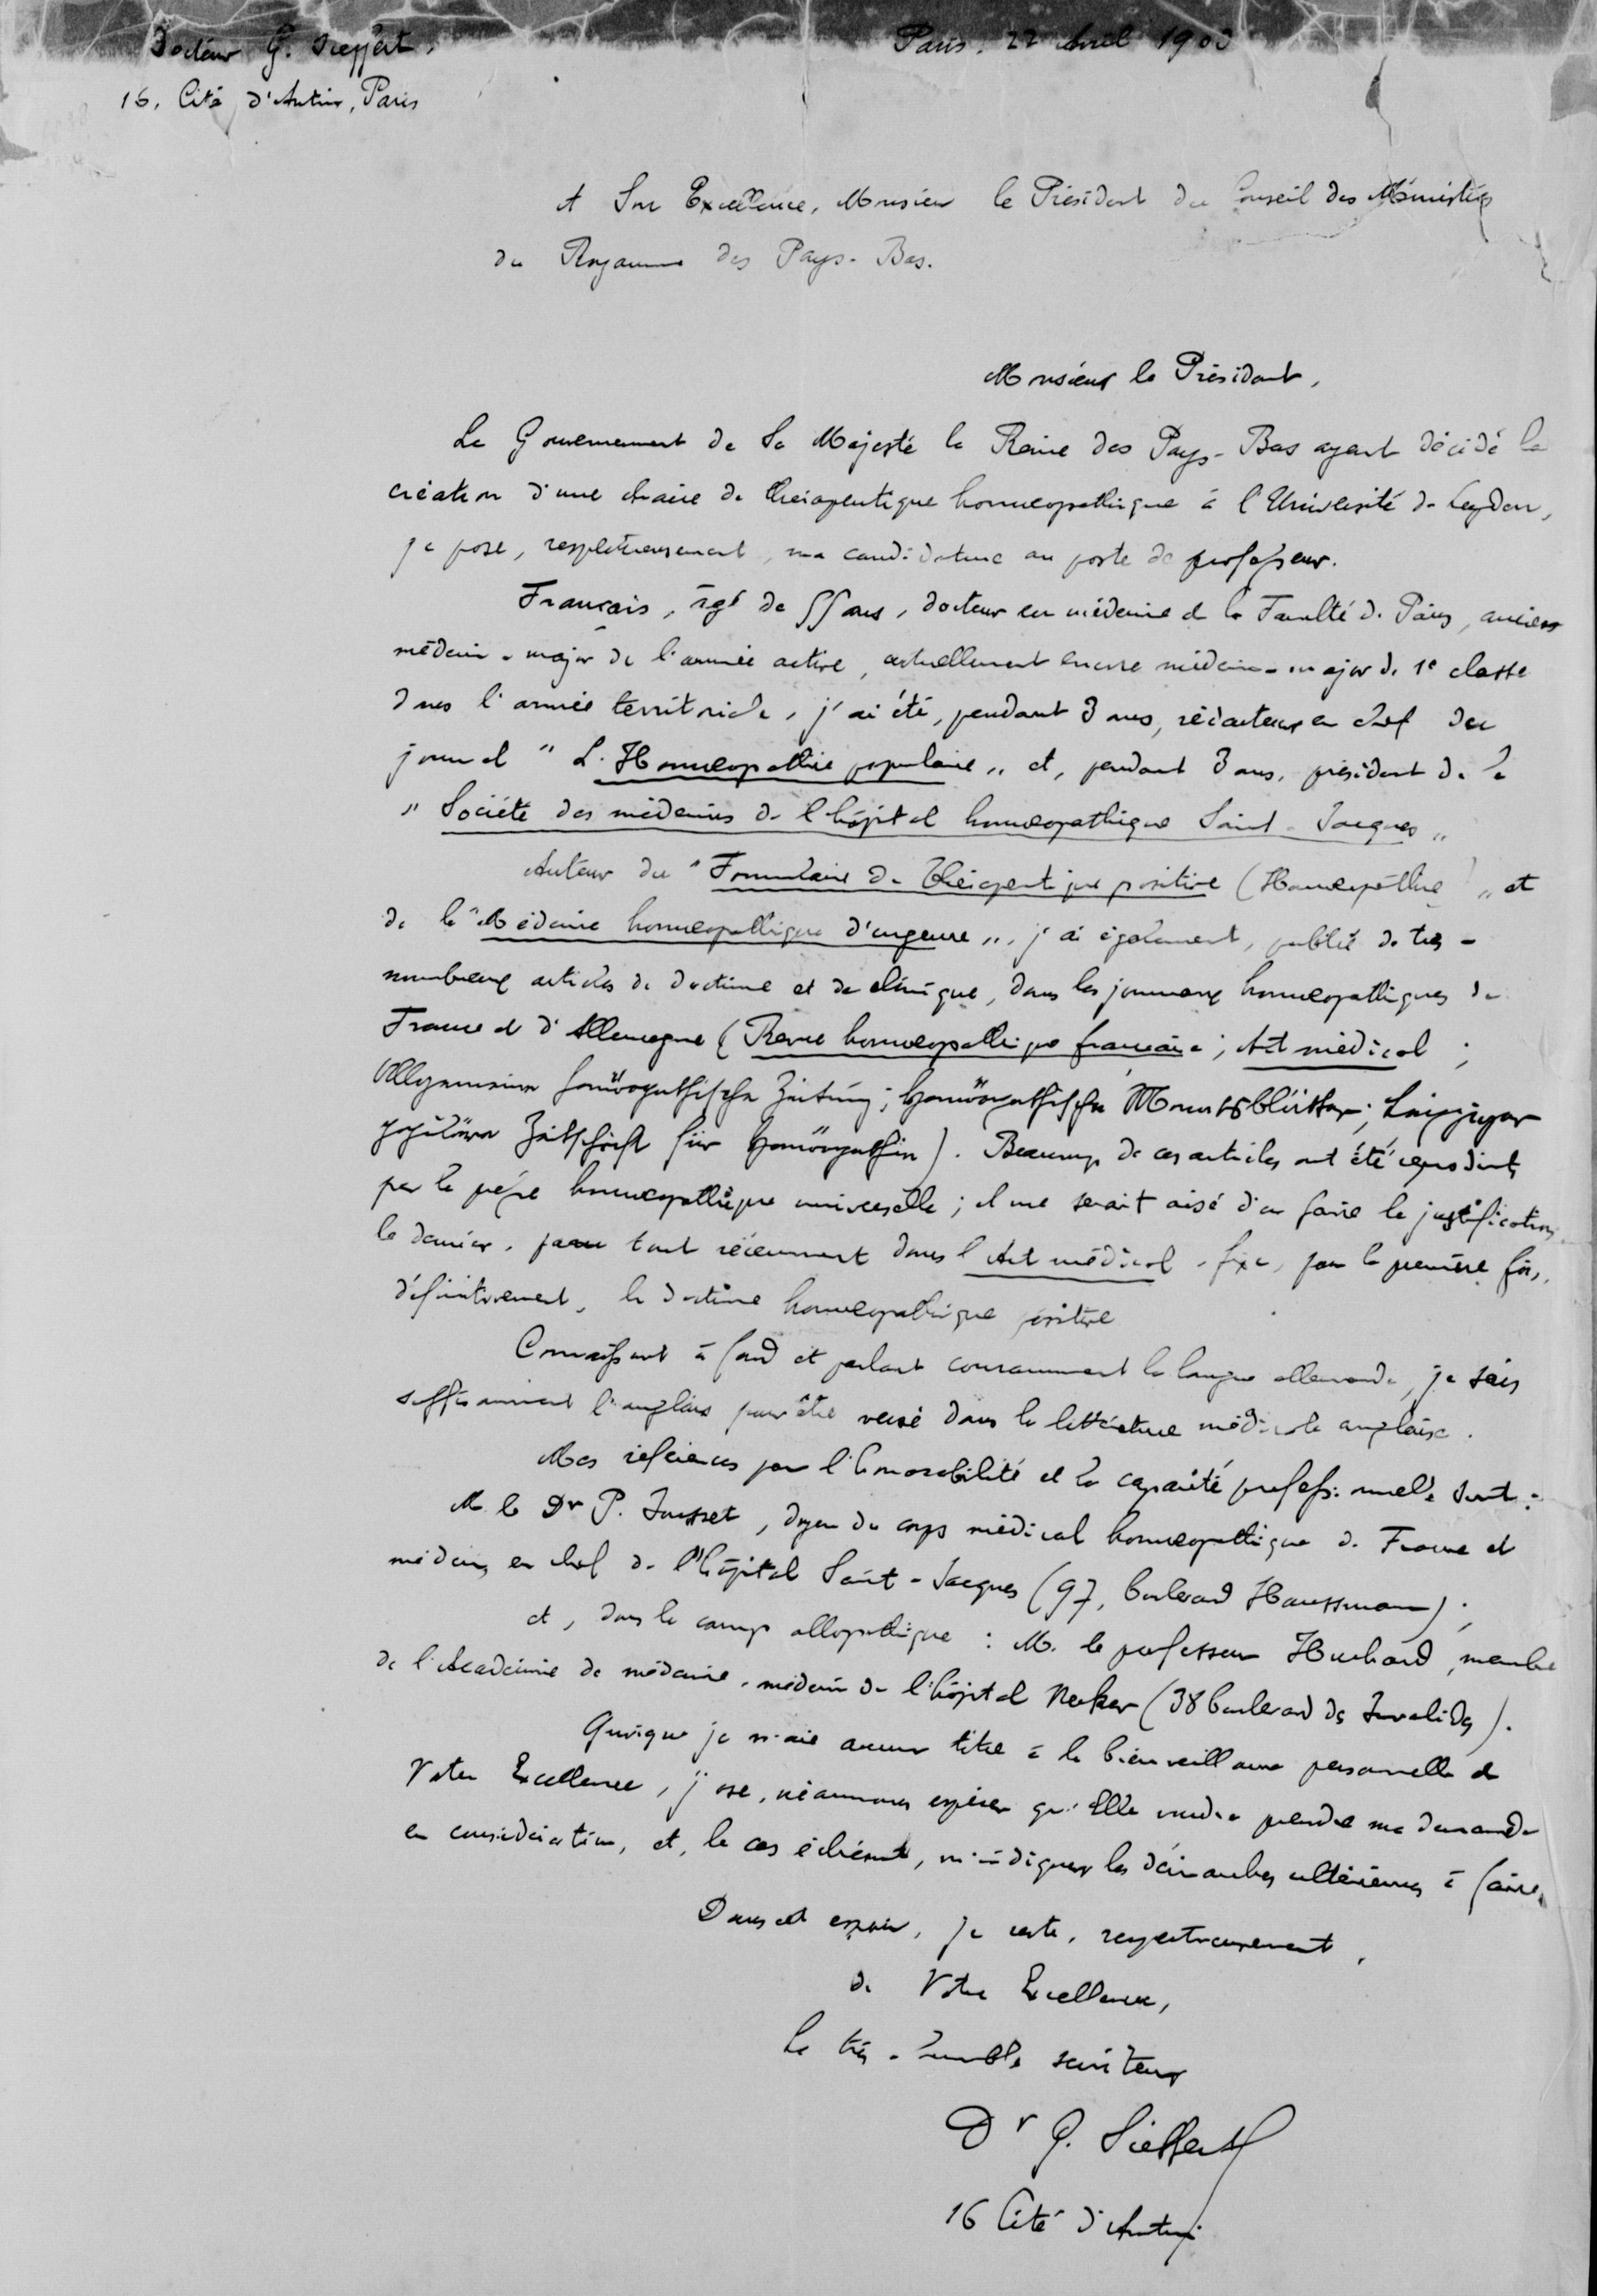 Docteur G. Sieffert,
Paris, 22 Avril 1903
16, Cité d'Antin, Paris
A Son Excellence, Monsieur le Président du Conseil des Ministres
du Royaume des Pays-Bas.
Monsieur le Président,
Le Gouvernement de Sa Majesté la Reine des Pays-Bas ayant décidé la
création d'une chaire de thérapeutique homœopathique à l'Université de Leyden,
je pose, respectueusement, ma candidature au poste de professeur.
Français, âgé de 55 ans, docteur en médecine de la Faculté de Paris, ancien
médecin-major de l'armée active, actuellement encore médecin-major de 1e classe
dans l'armée territoriale, j'ai été, pendant 3 ans, rédacteur en chef du
journal " L'Homœopathie populaire „ et, pendant 3 ans, président de la
" Société des médecins de l'hôpital homœopathique Saint-Jacques „
Auteur du " Formulaire de Thérapeutique positive (Homœopathie) „ et
de la " Médecine homœopathique d'urgence „, j'ai également, publié de très-
nombreux articles de doctrine et de clinique, dans les journaux homœopathiques de
France et d'Allemagne (Revue homœopathique française; Art médical;
Allgemeine homöopathische Zeitung; Homöopathische Monatsblätter; Leipziger
populäre Zeitschrift für Homöopathie). Beaucoup de ces articles ont été reproduits
par la presse homœopathique universelle; il me serait aisé d'en faire la justification;
le dernier, paru tout récemment dans l'Art médical, fixe, pour la première fois,
définitivement, la doctrine homœopathique positive
Connaissant à fond et parlant couramment la langue allemande, je sais
suffisamment l'anglais pour être versé dans la littérature médicale anglaise.
Mes références pour l'honorabilité et la capacité professionnelle sont :
M. le Dr P. Jousset, doyen du corps médical homœopathique de France et
médecin en chef de l'hôpital Saint-Jacques (97, boulevard Haussmann);
et, dans le camp allopathique : M. le professeur Huchard, membre
de l'Académie de médecine, médecin de l'hôpital Necker (38 boulevard des Invalides).
Quoique je n'aie aucun titre à la bienveillance personnelle de
Votre Excellence, j'ose, néanmoins espérer qu'Elle voudra prendre ma demande
en considération, et, le cas échéant, m'indiquer les démarches ultérieures à faire.
Dans cet espoir, je reste, respectueusement,
de Votre Excellence,
le très-humble serviteur
Dr G. Sieffert
16 Cité d'Antin